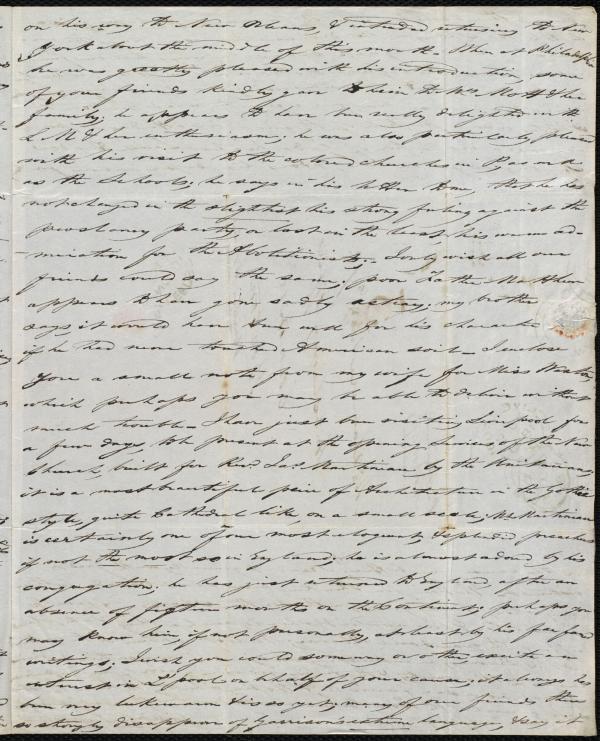 on his way to New Orleans, & intended returning to New
York about the middle of this month. When at Philadelphia
he was greatly pleased with his introduction, some
of your friends kindly gave to him to Mrs Mott & her
family; he appears to have been really delighted with
& her enthusiasm; he was also particularly pleased
with his visit to the colored churches in P, as well
as the Schools; he says in his letter to me, that he has
not changed in the slightest his strong feeling against the
proslavery party, or lost in the least, his warm ad-
miration for the Abolitionists, I only wish all our
friends could say the same; poor Father Mathew
appears to have gone sadly astray; my brother
says it would have been well for his character
if he had never touched American soil – I enclose
you a small note from my wife for Miss Weston
which perhaps you may be able to deliver without
much trouble – I have just been visiting Liverpool for
a few days, to be present at the opening services of the New
Church, built for Revd Jas Martineau by the Unitarians,
it is a most beautiful piece of Architecture in the Gothic
style, quite Cathedral like, on a small scale; Mr Martineau
is certainly one of our most eloquent & splendid preachers
if not the most so in England; he is almost adored by his
congregation, he has just returned to England, after an
absence of fifteen months on the Continent; perhaps you
may know him, if not personally, at least by his
writings; I wish you could some way or other, excite an
interest in L'pool on behalf of your cause; it always has
been very lukewarm & so very many of our friends there
so strongly disapprove of Garrison's language, & say it